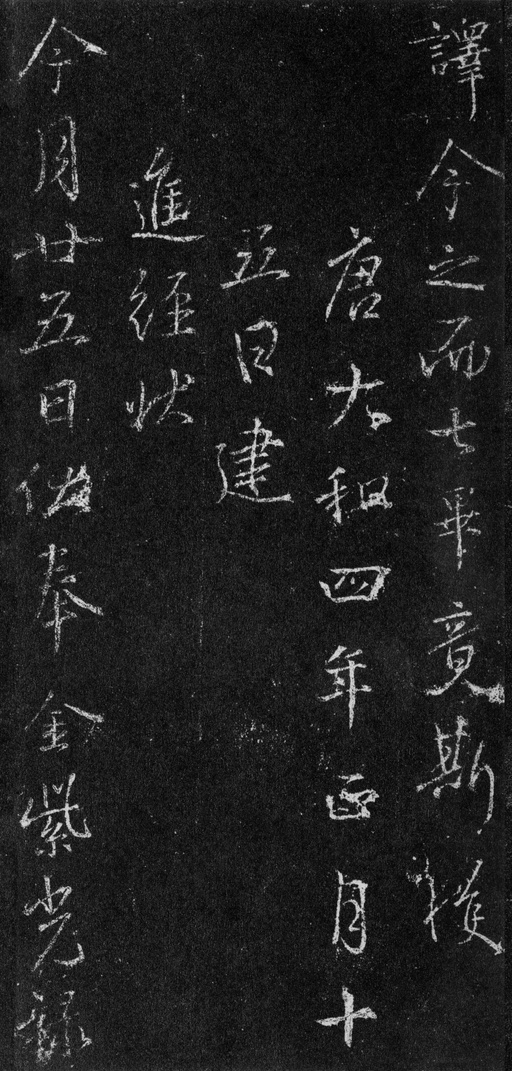 譯今之而七畢竟斯
唐大和四年正月十
五日建
進經狀
今月廿五日伏奉 金紫光祿